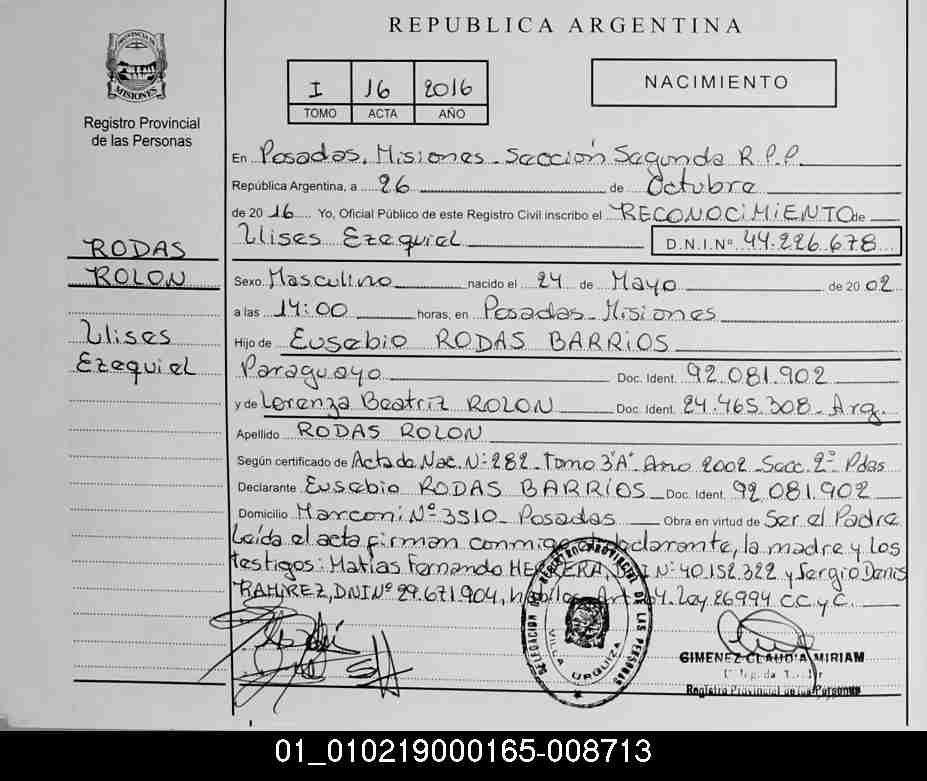 REPUBLICA ARGENTINA
PROVINCIA DE MISIONES
Registro Provincial
de las Personas
I 16 2016
TOMO ACTA AÑO
NACIMIENTO
En Posadas, Misiones - Sección Segunda R.P.P.
República Argentina, a 26 de Octubre
de 2016 Yo, Oficial Público de este Registro Civil inscribo el RECONOCIMIENTO de
Ulises Ezequiel D.N.I.Nº 44.226.678
RODAS
ROLON
Ulises
Ezequiel
Sexo Masculino nacido el 24 de Mayo de 2002
a las 14:00 horas, en Posadas - Misiones
Hijo de Eusebio RODAS BARRIOS
Paraguayo Doc. Ident. 92.081.902
y de Lorenza Beatriz ROLON Doc. Ident. 24.465.308 - Arg.
Apellido RODAS ROLON
Según certificado de Acta de Nac. Nº 282 - Tomo 3º"A" - Año 2002 - Secc. 2º Pdas
Declarante Eusebio RODAS BARRIOS Doc. Ident. 92.081.902
Domicilio Marconi Nº 3510 - Posadas Obra en virtud de Ser el Padre
Leída el acta firman conmigo declarante, la madre y los
testigos: Matías Fernando Nº: 40.152.322 y Sergio Denis
RAMIREZ, DNI Nº 29.671.904, Ley 26994 C.C. y C.
DELEGACION DEL REGISTRO PROVINCIAL DE LAS PERSONAS
VILLA URQUIZA
GIMENEZ CLAUDIA MIRIAM
Registro Provincial de las Personas
01_010219000165-008713